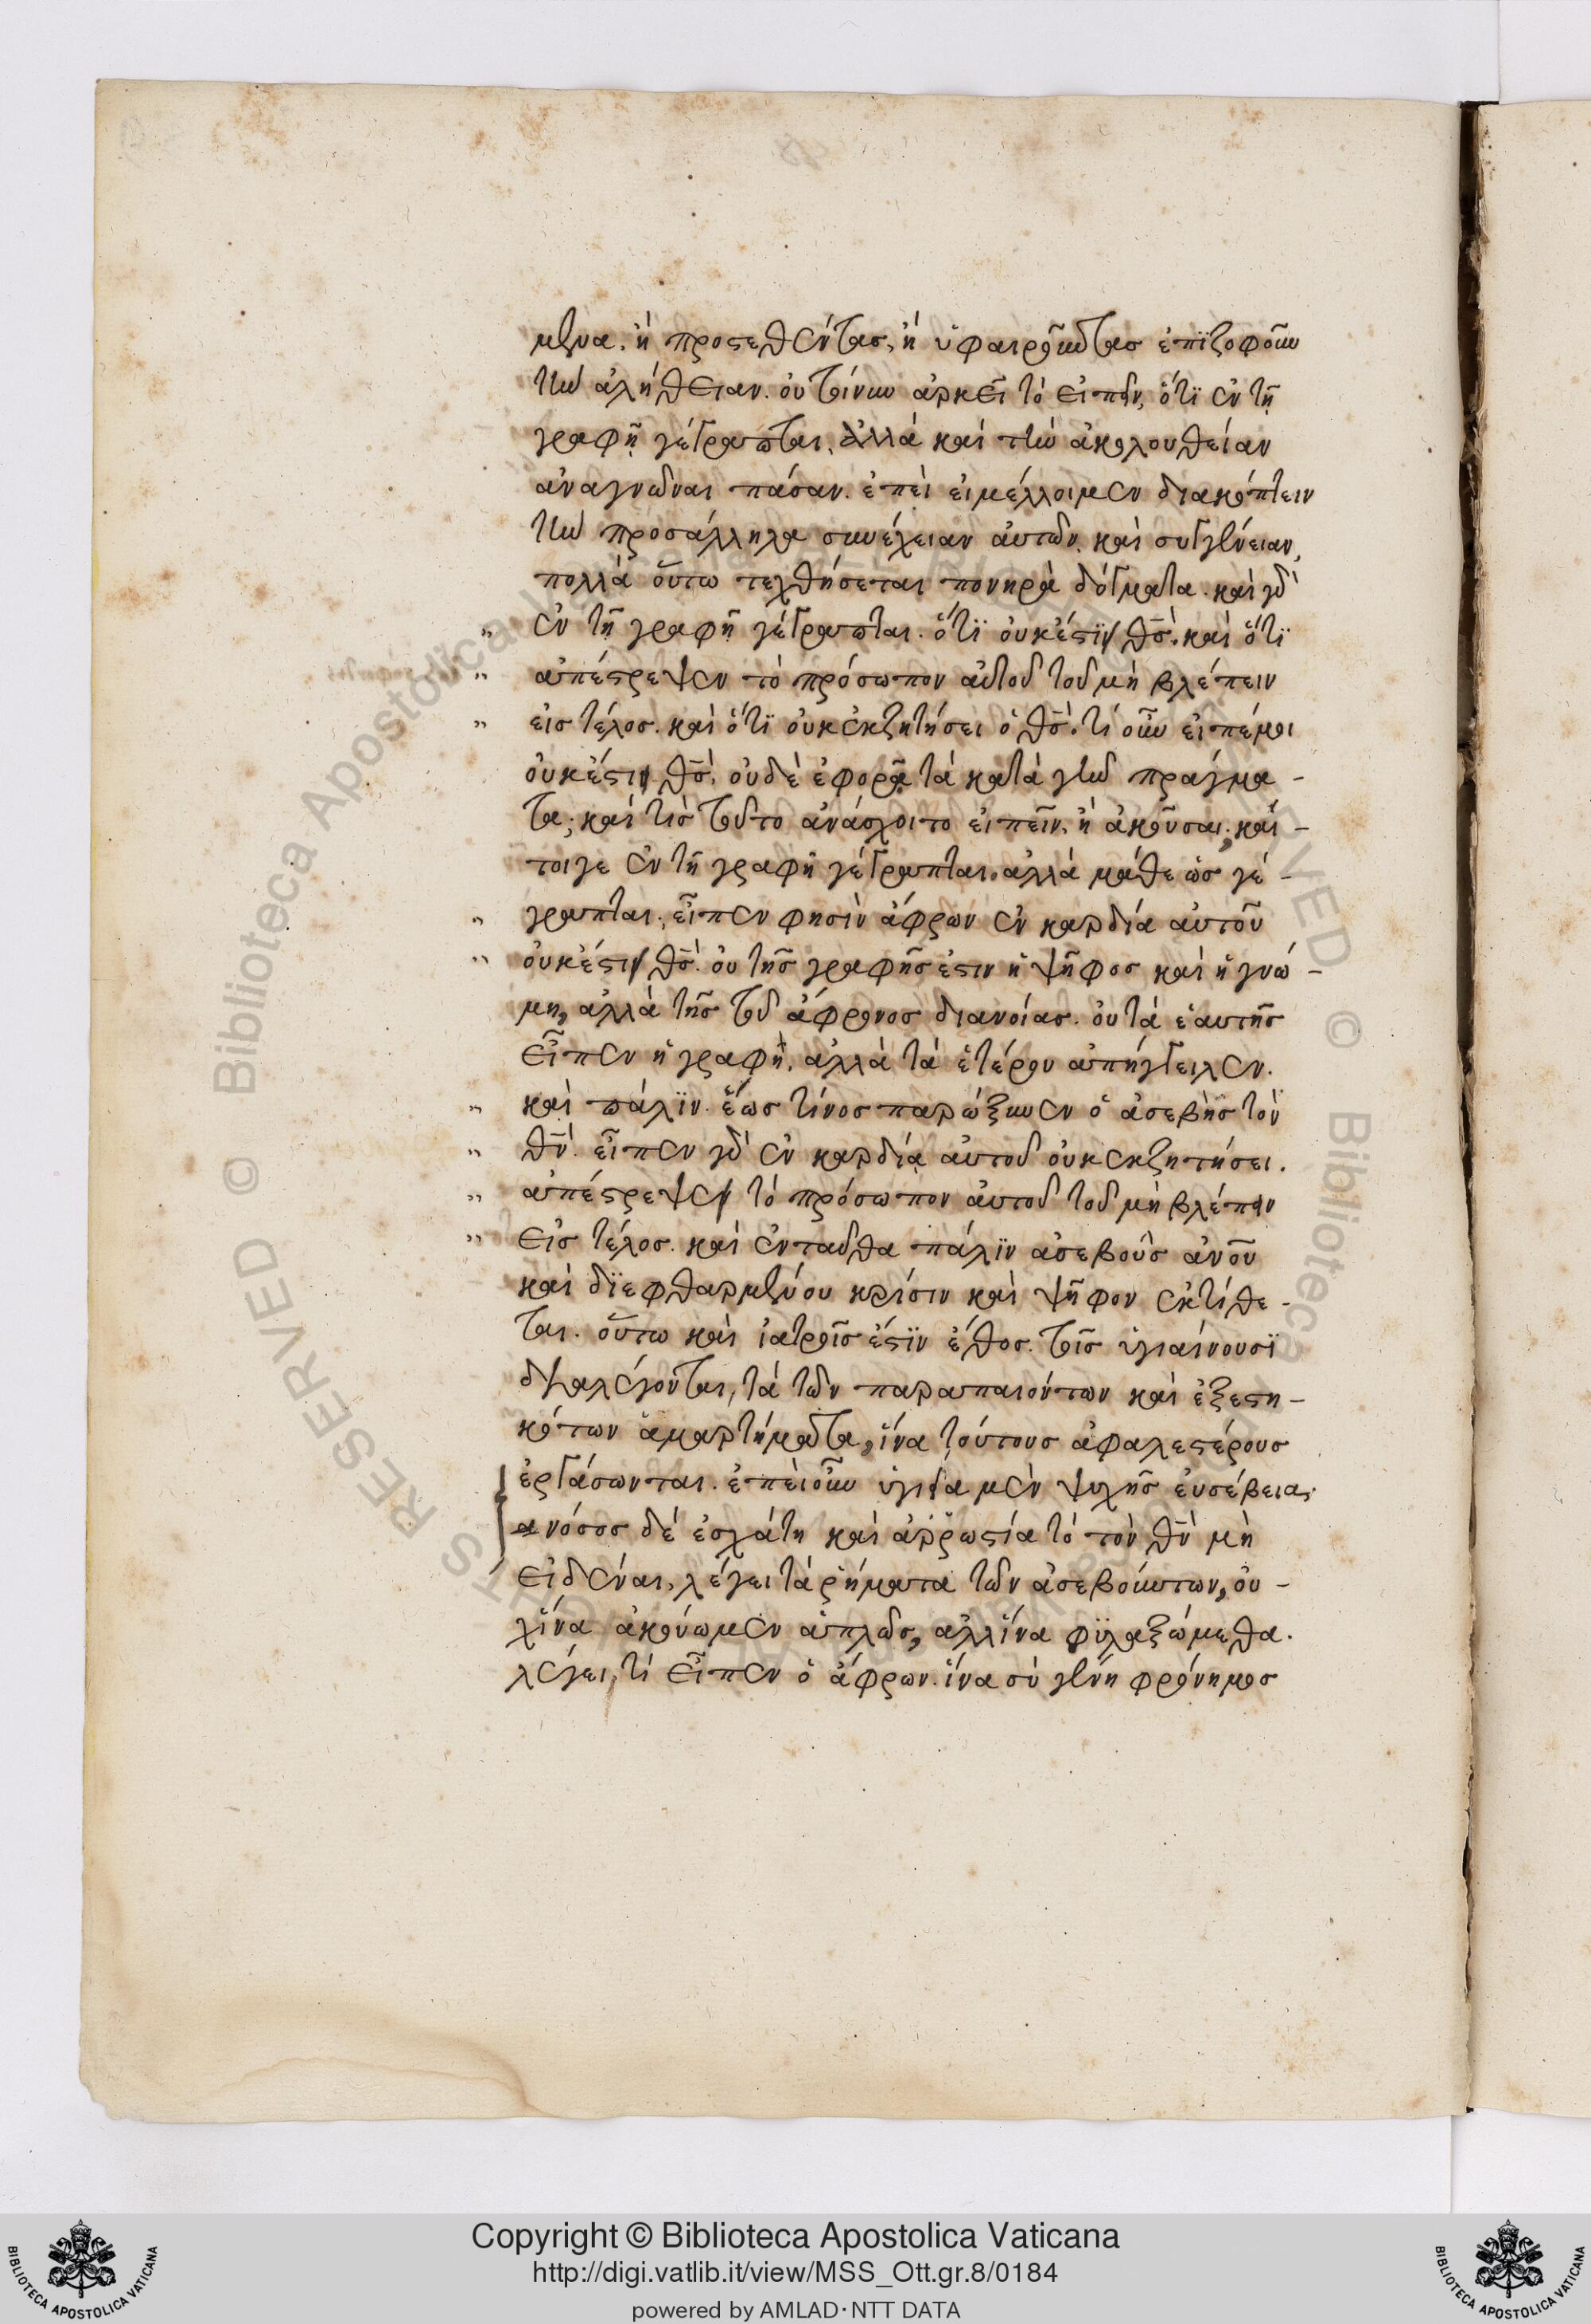 μένα. ἢ προστεθέντας, ἢ ὑφαιροῦντας ἐπϊζοφοῦν
τὴν ἀλήθειαν. οὐ τοίνυν ἀρκεῖ τὸ εἰπεῖν, ὅτϊ ἐν τῇ
γραφῇ γέγραπται, ἀλλὰ καὶ τὴν ἀκολουθείαν
ἀναγνῶναι πάσαν. ἐπεὶ εἰμέλλοιμεν διακόπτειν
τὴν πρὸσάλληλα συνέχειαν αὐτῶν. καὶ συγγένειαν,
πολλὰ οὕτω τεχθήσεται πονηρὰ δόγματα. καὶ γὰρ
" ἐν τῇ γραφῇ γέγραπται. ὅτϊ οὐκἔστϊν θς̄. καὶ ὅτϊ
" ἀπέστρεψεν τὸ πρόσωπον αὐτοῦ τοῦ μὴ βλέπειν
" εἰς τέλος. καὶ ὅτϊ οὐκἐκζητήσει ὁ θς̄. τί οὖν εἰπέμοι
οὐκἔστιν θς̄. οὐδὲ ἐφορᾷ τὰ κατὰ γῆν πράγμα -
τα; καὶ τίς τοῦτο ἀνάσχοιτο εἰπεῖν, ἢ ἀκοῦσαι; καί -
τοιγε ἐν τῇ γραφῇ γέγραπται. ἀλλὰ μάθε ὡς γέ -
" γραπται. εἶπεν φησὶν ἄφρων ἐν καρδία αὐτοῦ
" οὐκἔστιν θς̄. οὐ τῆς γραφῆς ἐστιν ἡ ψῆφος καὶ ἡ γνώ -
μη, ἀλλὰ τῆς τοῦ ἄφρονος διανοίας. οὐ τὰ ἑαυτῆς
εἶπεν ἡ γραφὴ, ἀλλὰ τὰ ἑτέρου ἀπήγγειλεν.
" καὶ πάλϊν. ἕως τίνος παρώξυνεν ὁ ἀσεβὴς τὸν
" θν̄. εἶπεν γὰρ ἐν καρδίᾳ αὐτοῦ οὐκἐκζητήσει.
" ἀπέστρεψεν τὸ πρόσωπον αὐτοῦ τοῦ μὴ βλέπειν
" εἰς τέλος. καὶ ἐνταῦθα πάλϊν ἀσεβοῦς ἀνο̄υ
καὶ δϊεφθαρμένου κρίσιν καὶ ψῆφον ἐκτίθε -
ται. οὕτω καὶ ἰατροῖς ἐστϊν ἔθος. τοῖς ὑγιαίνουσϊ
διαλέγονται, τὰ τῶν παραπαιόντων καὶ ἐξεστη -
κότων ἁμαρτήματα, ἵνα τούτους ἀφαλεστέρους
ἐργάσωνται. ἐπεὶοὖν ὑγιεία μὲν ψυχῆς εὐσέβεια,
νόσος δὲ ἐσχάτη καὶ ἀῤῥωστία τὸ τὸν θν̄ μὴ
εἰδέναι, λέγει τὰ ῥήματα τῶν ἀσεβούντων, οὐ -
χἵνα ἀκούωμεν ἁπλῶς, ἀλλἵνα φϋλαξώμεθα.
λέγει, τί εἶπεν ὁ ἄφρων. ἵνα σὺ γένῃ φρόνημος
Copyright © Biblioteca Apostolica Vaticana
http://digi.vatlib.it/view/MSS_Ott.gr.8/0184
powered by AMLAD·NTT DATA
BIBLIOTECA APOSTOLICA VATICANA
BIBLIOTECA APOSTOLICA VATICANA